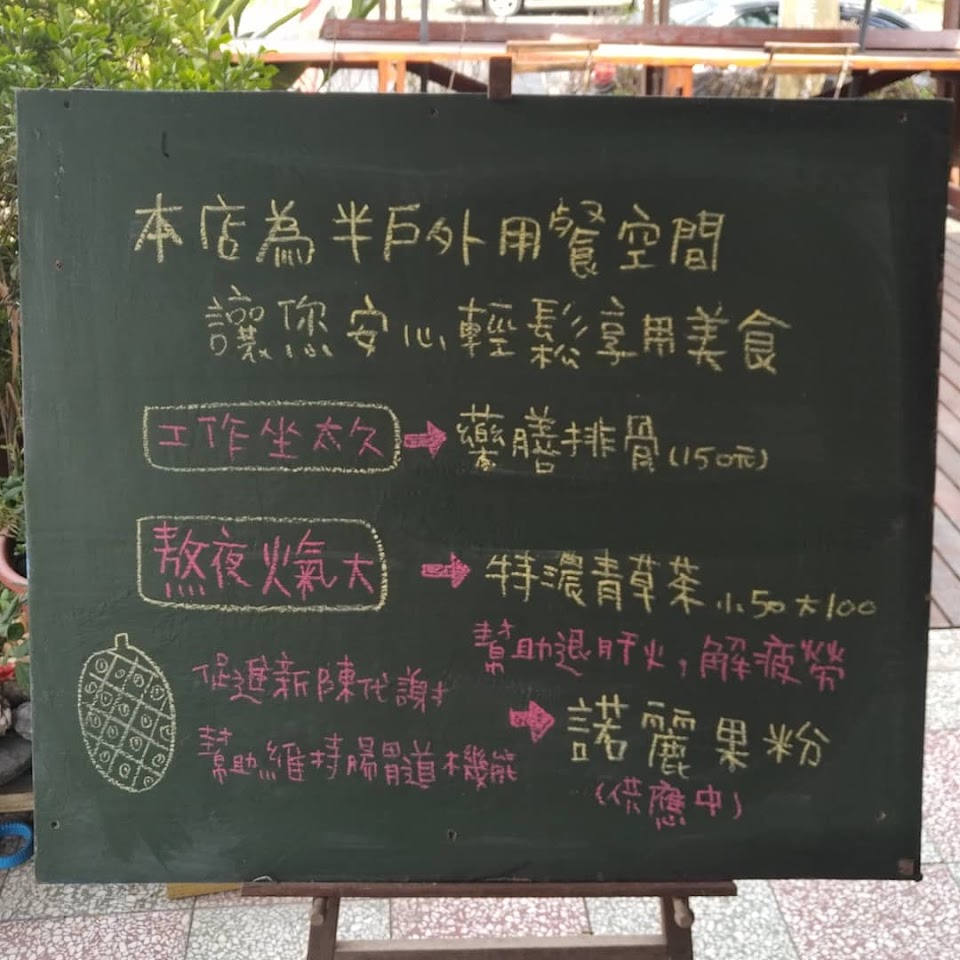 本店為半戶外用餐空間
讓您安心輕鬆享用美食
工作坐太久 藥膳排骨(150元)
熬夜火氣大 特濃青草茶 小50大100
幫助退肝火,解疲勞
促進新陳代謝
幫助維持腸胃道機能
諾麗果粉
(供應中)